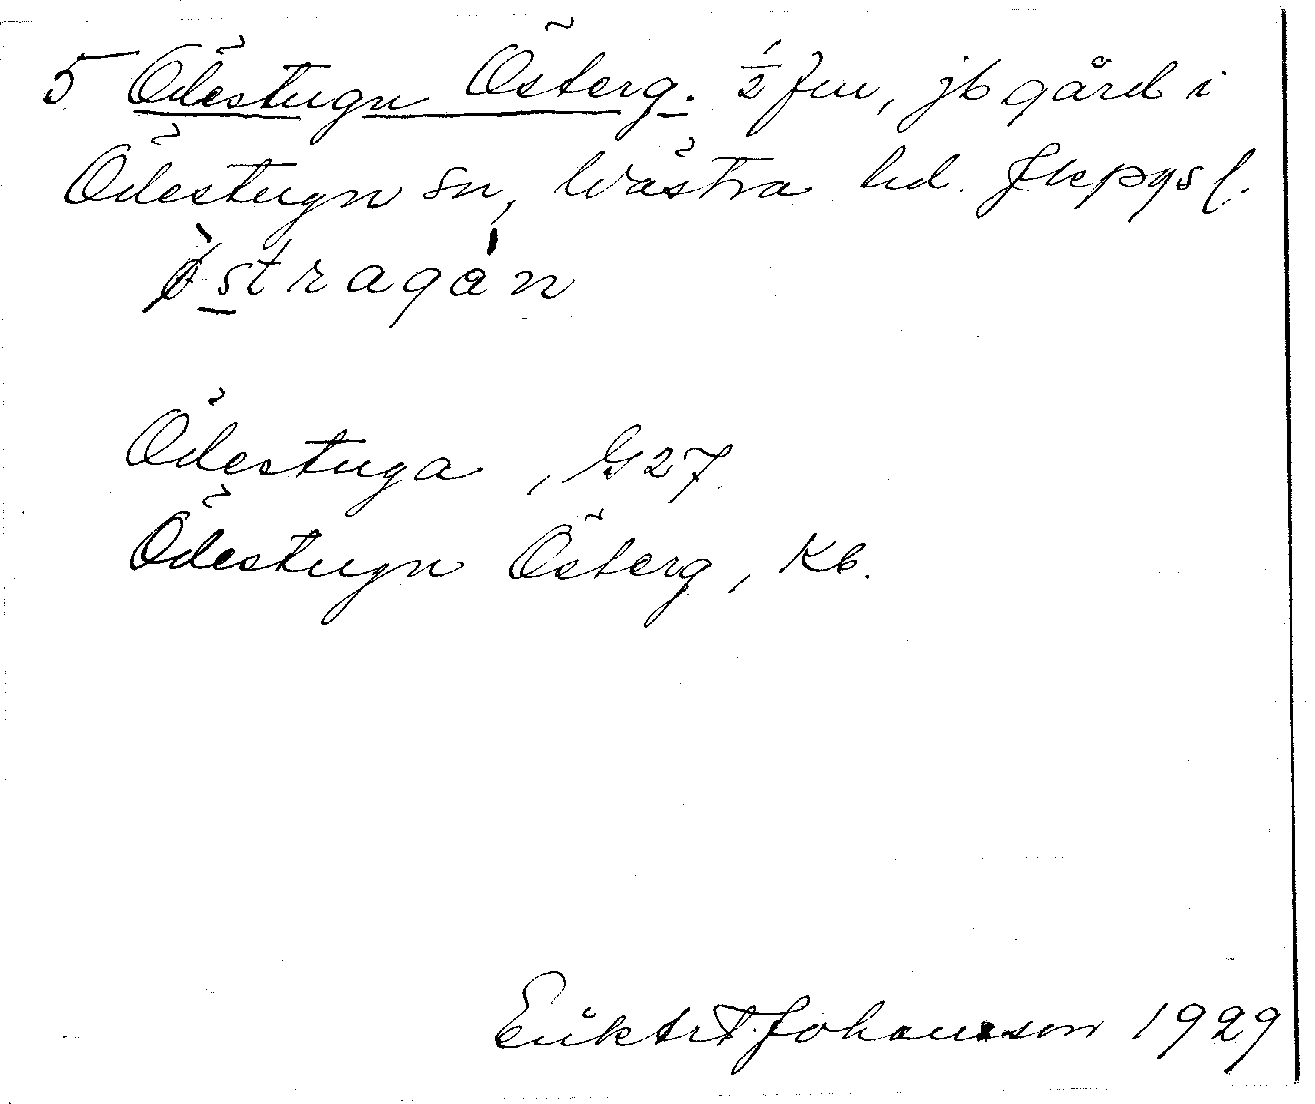 5 Ödestugn Österg. ½ fm, jb gård i
Ödestugn sn, Västra hd. Jkpgs l.
östragån
Ödestuga, G27
Ödestugn Österg, Kb.
Johansson 1929